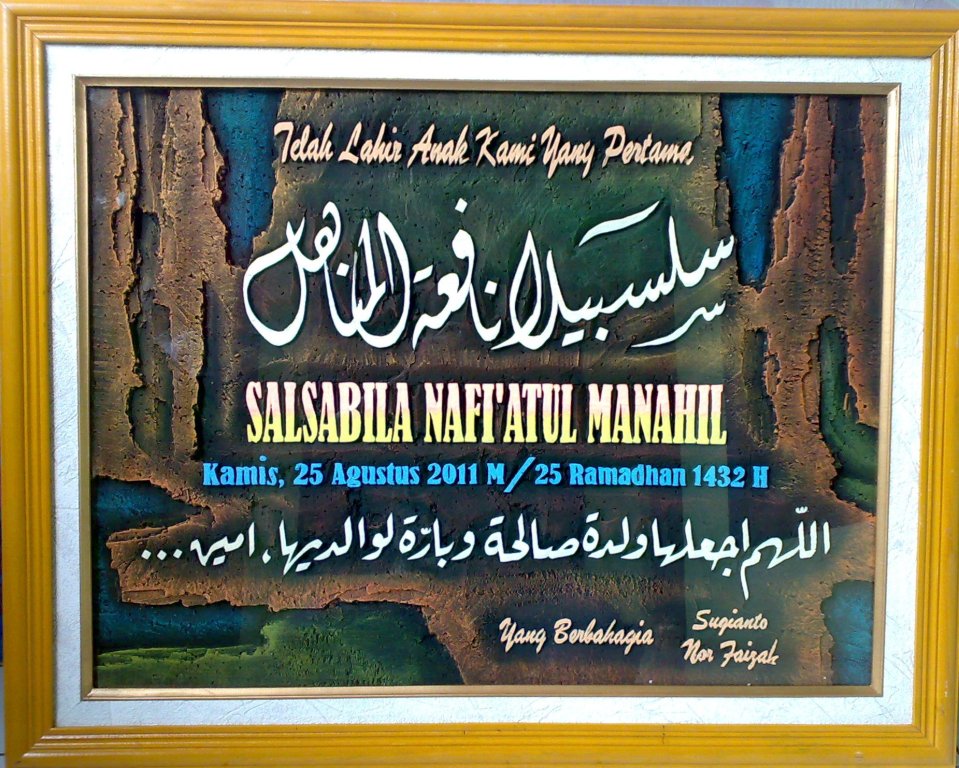 Telah Lahir Anak Kami Yang Pertama,
سلسبيلا نافعة المناهل
SALSABILA NAFI'ATUL MANAHIL
Kamis, 25 Agustus 2011 M / 25 Ramadhan 1432 H
اللّهم اجعلها ولدة صالحة وبارّة لوالديها، امين...
Yang Berbahagia
Sugianto
Nor Faizah